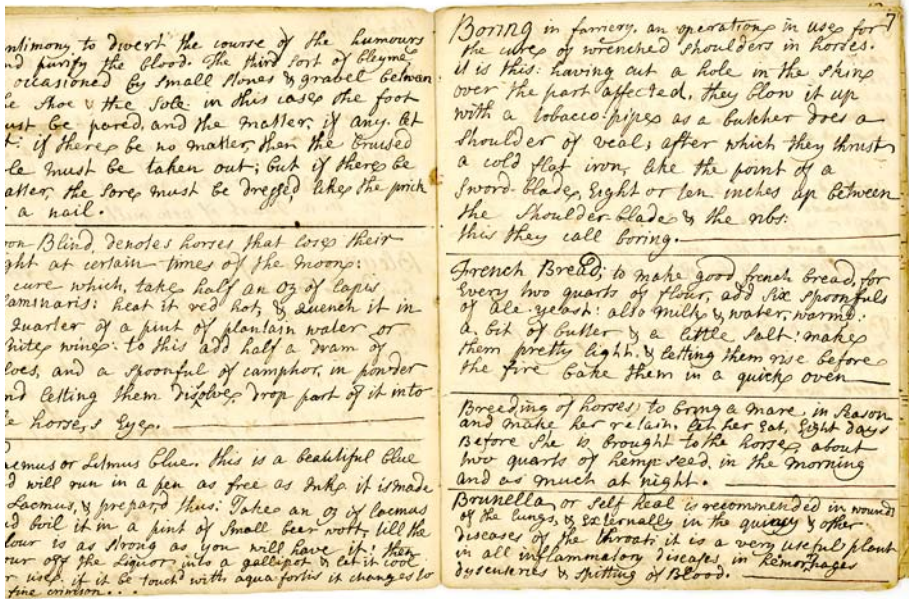 ntimony to divert the course of the humours
nd purify the blood. The third sort of bleyme,
occasioned by small stones & gravel between
e shoe & the sole. in this case the foot
ust be pared, and the matter, if any. let
t: if there be no matter, then the bruised
le must be taken out; but if there be
atter, the sore must be dressed, like the prick
a nail.
oon Blind, denotes horses that lose their
ght at certain times of the Moon:
cure which, take half an oz of lapis
aminaris: heat it red hot, & quench it in
quarter of a pint of plantain water or
hite wine: to this add half a dram of
loes, and a spoonful of camphor, in powder
nd letting them disolve, drop part of it into
e horse,s Eye.
acmus or Litmus blue. this is a beautiful blue
d will run in a pen as free as Ink. it is made
Lacmus, & prepard thus: Take an oz of lacmus
nd boil it in a pint of small beer wott, till the
lour is as strong as you will have it: then
our off the Liquor into a gallipot & let it cool
r use. if it be touch with aqua fortis it changes to
fine crimson...
7
Boring in farriery. an operation in use for
the cure of wrenched shoulders in horses.
it is this: having cut a hole in the skin
over the part affected, they blow it up
with a tobacco-pipe as a butcher does a
shoulder of veal; after which they thrust
a cold flat iron, like the point of a
sword-blade, Eight or ten inches up between
the shoulder-blade & the ribs:
this they call boring.
French Bread; to make good french bread, for
Every two quarts of flour, add six spoonfuls
of ale-yeast: also milk & water, warmd:
a bit of butter & a little salt: make
them pretty light. & letting them rise before
the fire bake them in a quick oven
Breeding of horses; to bring a mare in season
and make her retain. let her Eat, Eight days
Before she is brought to the horse, about
two quarts of hemp-seed. in the morning
and as much at night.
Brunella, or self heal is recommended in wounds
of the lungs, & Externally in the quinsy & other
diseases of the throat: it is a very useful plant
in all inflammatory diseases, in hemorhages
dysenteries & spitting of Blood.